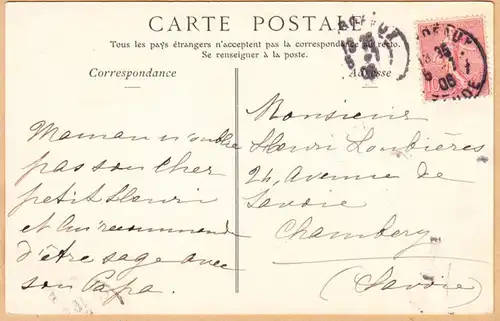 CARTE POSTALE
Tous les pays étrangers n'acceptent pas la correspondance au recto.
Se renseigner à la poste.
Correspondance
Adresse
Maman n'oublie
pas son cher
petit Henri
et lui recommande
d'être sage avec
son Papa.
Monsieur
Henri Loubières
24, Avenue de
Savoie
Chambery
(Savoie)
18 35
06
18 35
06